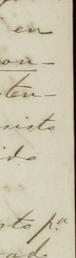 en
on-
ten-
sisto
ido
sto pa
ad